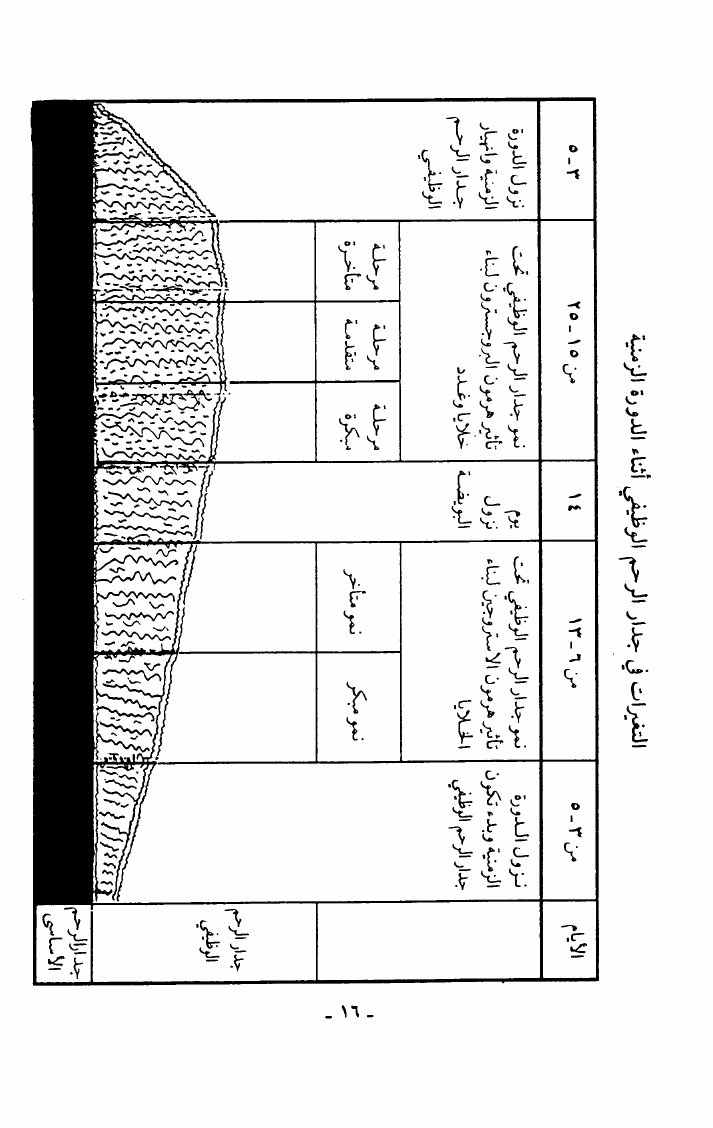 التغيرات في جدار الرحم الوظيفي أثناء الدورة الزمنية
الأيام
من ٣ - ٥
من ٦ - ١٣
١٤
من ١٥ - ٢٥
٣ - ٥
نزول الدورة
الزمنية وبدء تكون
جدار الرحم الوظيفي
نمو جدار الرحم الوظيفي تحت
تأثير هرمون الاستروجين لبناء
الخلايا
يوم
نزول
البويضة
نمو جدار الرحم الوظيفي تحت
تأثير هرمون البروجسترون لبناء
خلايا وغدد
نزول الدورة
الزمنية وانهيار
جدار الرحم
الوظيفي
نمو مبكر
نمو متأخر
مرحلة
مبكرة
مرحلة
متقدمة
مرحلة
متأخرة
جدار الرحم
الوظيفي
جدار الرحم
الأساسى
- ١٦ -